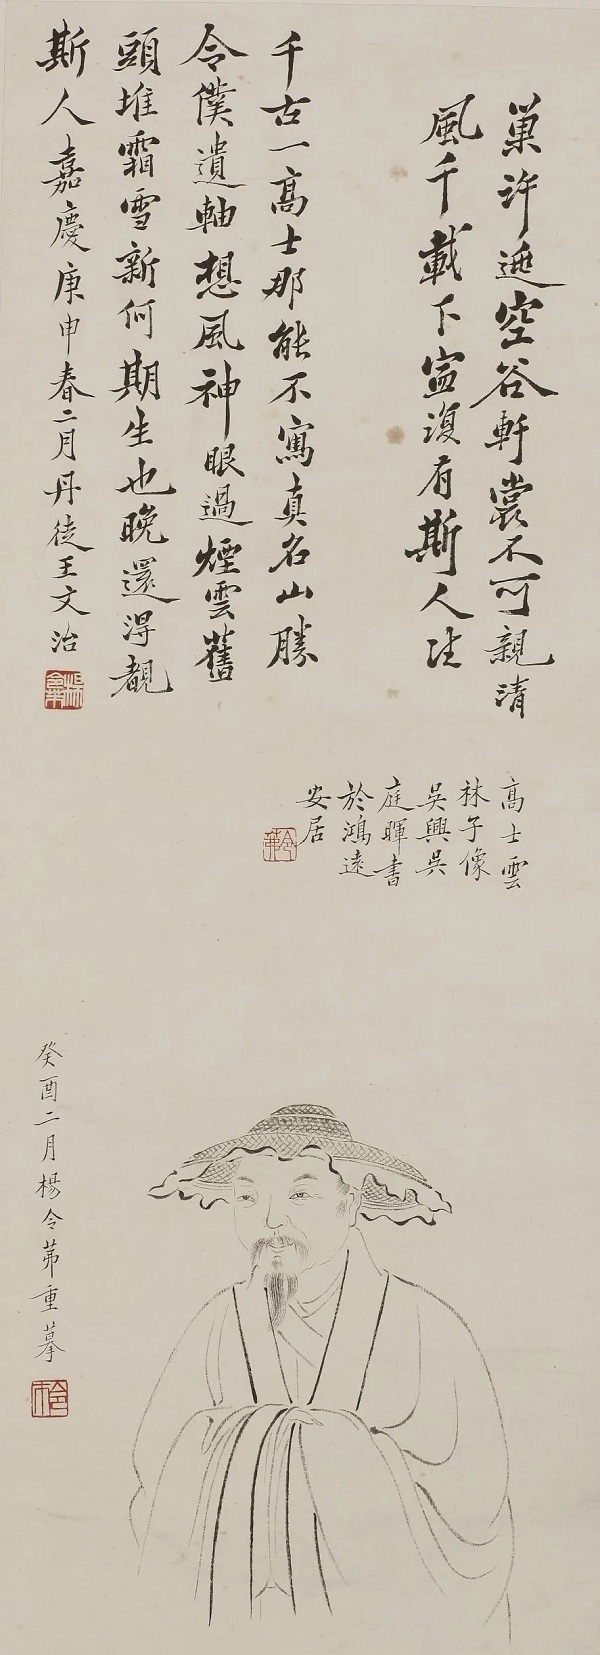 巢許遯空谷軒裳不可親清
風千載下寍復有斯人
千古一高士那能不寫真名山勝
令僕遺軸想風神眼過煙雲舊
頭堆霜雪新何期生也晚還得覩
斯人嘉慶庚申春二月丹徒王文治
高士雲
林子像
吳興吳
庭暉書
於鴻遠
安居
癸酉二月楊令茀重摹